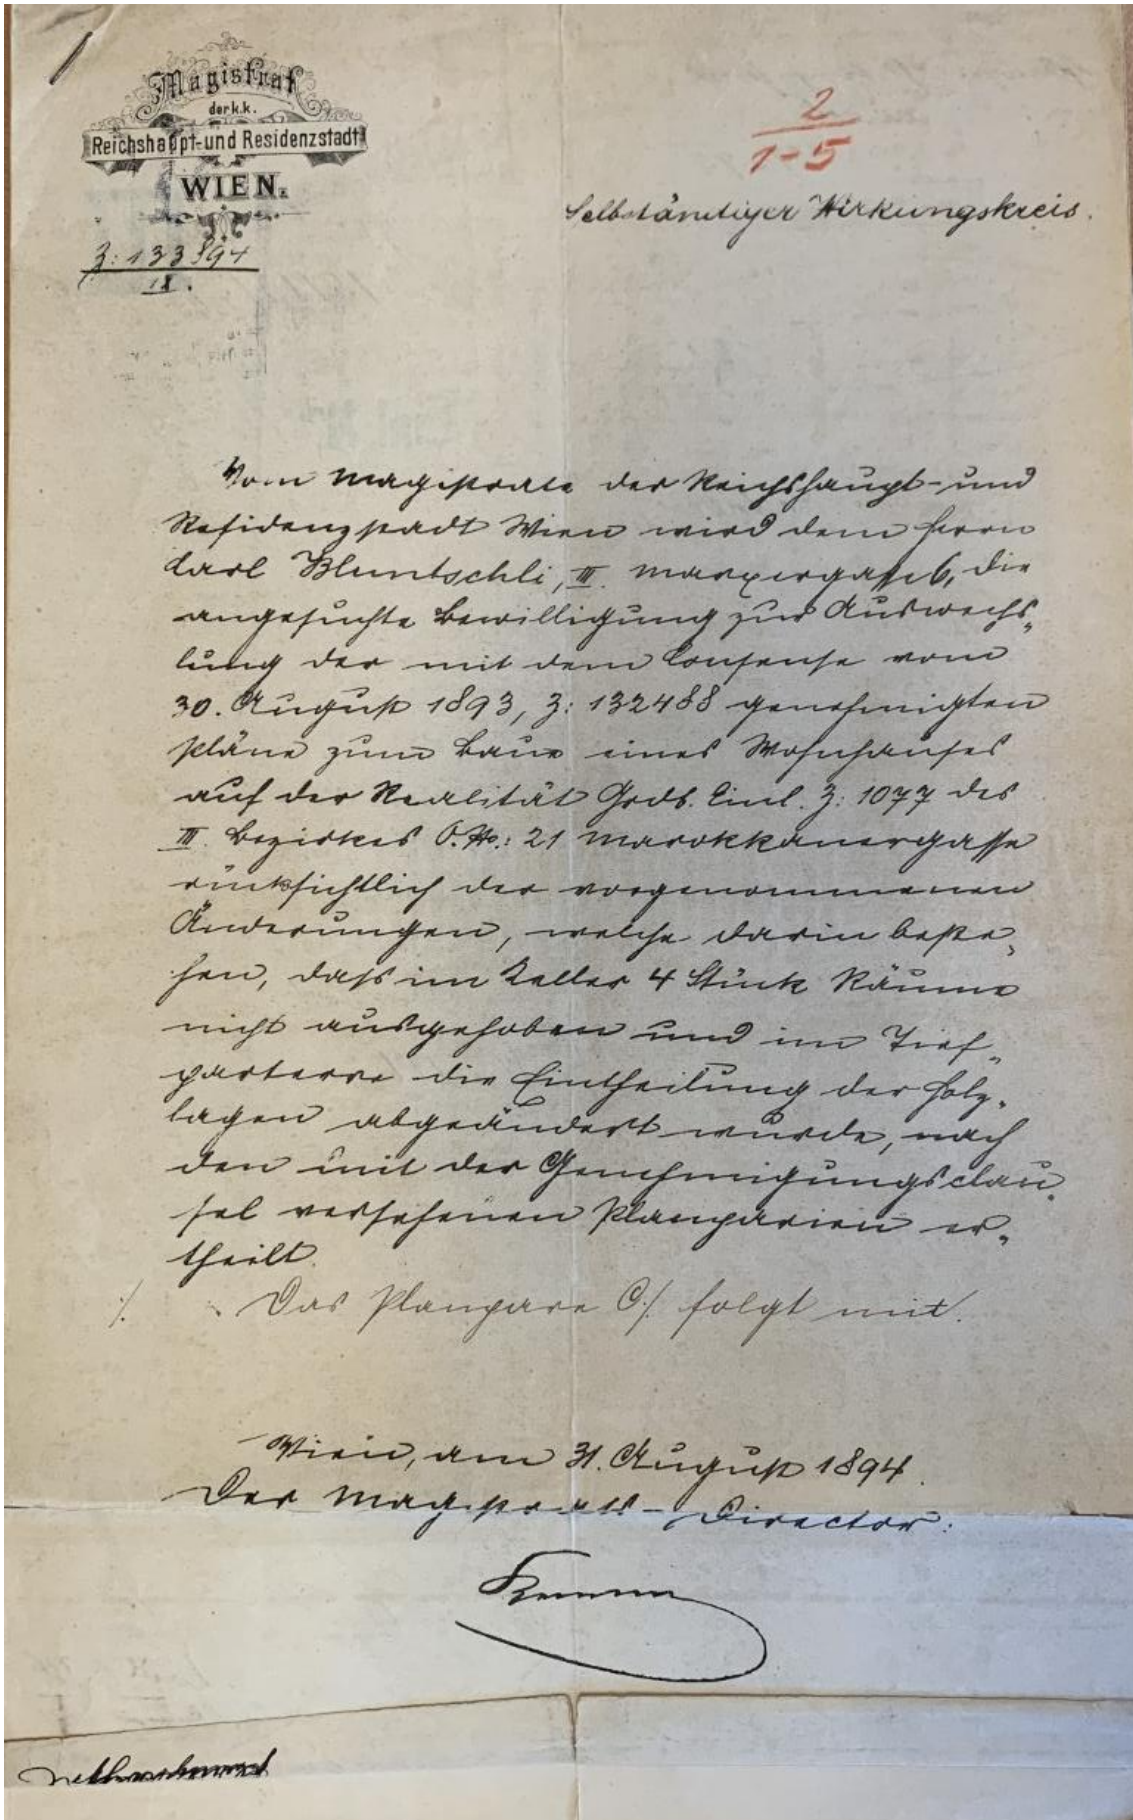 Magistrat
der k.k.
Reichshaupt-und Residenzstadt
WIEN.
Z: 133894
IX.
2
1-5
Selbständiger Wirkungskreis.
Vom Magistrate der Reichshaupt- und
Residenzstadt Wien wird dem Herrn
Carl Bluntschli, III. Marxergasse 6, die
angesuchte Bewilligung zur Auswechs-
lung der mit dem Consense vom
30. August 1893, Z: 132488 genehmigten
Pläne zum Baue eines Wohnhauses
auf der Realität Grdb. Einl. Z: 1077 des
III. Bezirkes O. No.: 21 Marokkanergasse
rücksichtlich der vorgenommenen
Änderungen, welche darin beste-
hen, dass im Keller 4 Stück Räume
nicht ausgehoben und im Tief-
parterre die Eintheilung der Holz-
lagen abgeändert wurde, nach
den mit der Genehmigungsclau-
sel versehenen Planparien er-
theilt.
./. Das Planpare C./. folgt mit.
Wien, am 31. August 1894.
Der Magistrats-Director: